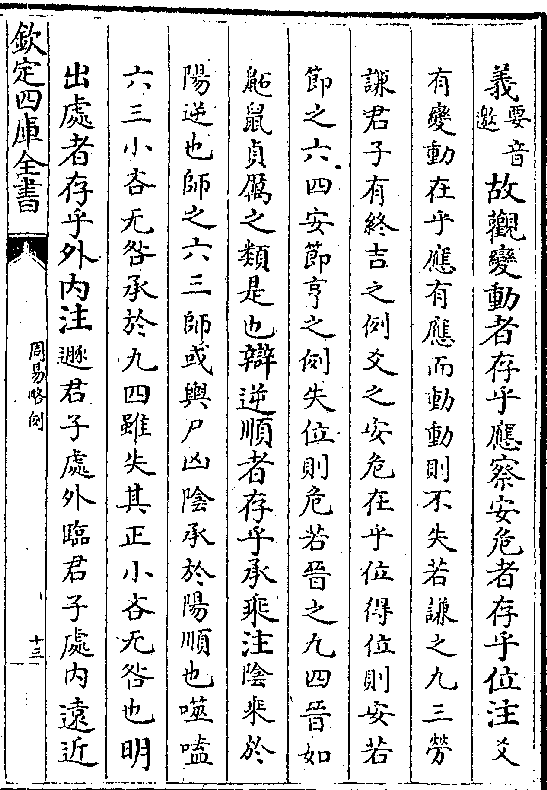 義要音邀故觀變動者存乎應察安危者存乎位注爻
有變動在乎應有應而動動則不失若謙之九三勞
謙君子有終吉之例爻之安危在乎位得位則安若
節之六四安節亨之例失位則危若晉之九四晉如
鼫鼠貞厲之類是也辯逆順者存乎承乘注陰乘於
陽逆也師之六三師或輿尸凶陰承於陽順也噬嗑
六三小吝无咎承於九四雖失其正小吝无咎也明
出處者存乎外内注遯君子處外臨君子處内遠近
欽定四庫全書
周易略例
十三